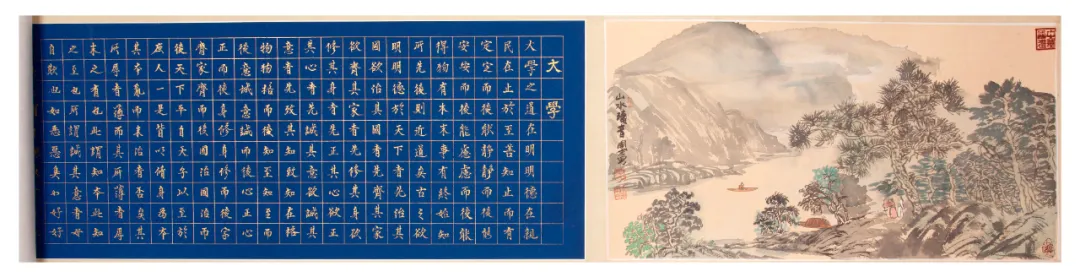 大學
大學之道在明明德在親
民在止於至善知止而有
定定而後能靜靜而後能
安安而後能慮慮而後能
得物有本末事有終始知
所先後則近道矣古之欲
明明德於天下者先治其
國欲治其國者先齊其家
欲齊其家者先修其身欲
修其身者先正其心欲正
其心者先誠其意欲誠其
意者先致其知致知在格
物物格而後知至知至而
後意誠意誠而後心正心
正而後身修身修而後家
齊家齊而後國治國治而
後天下平自天子以至於
庶人一是皆以修身為本
其本亂而末治者否矣其
所厚者薄而其所薄者厚
未之有也此謂知本此知
之至也所謂誠其意者毋
自欺也如惡惡臭如好好
山水清音